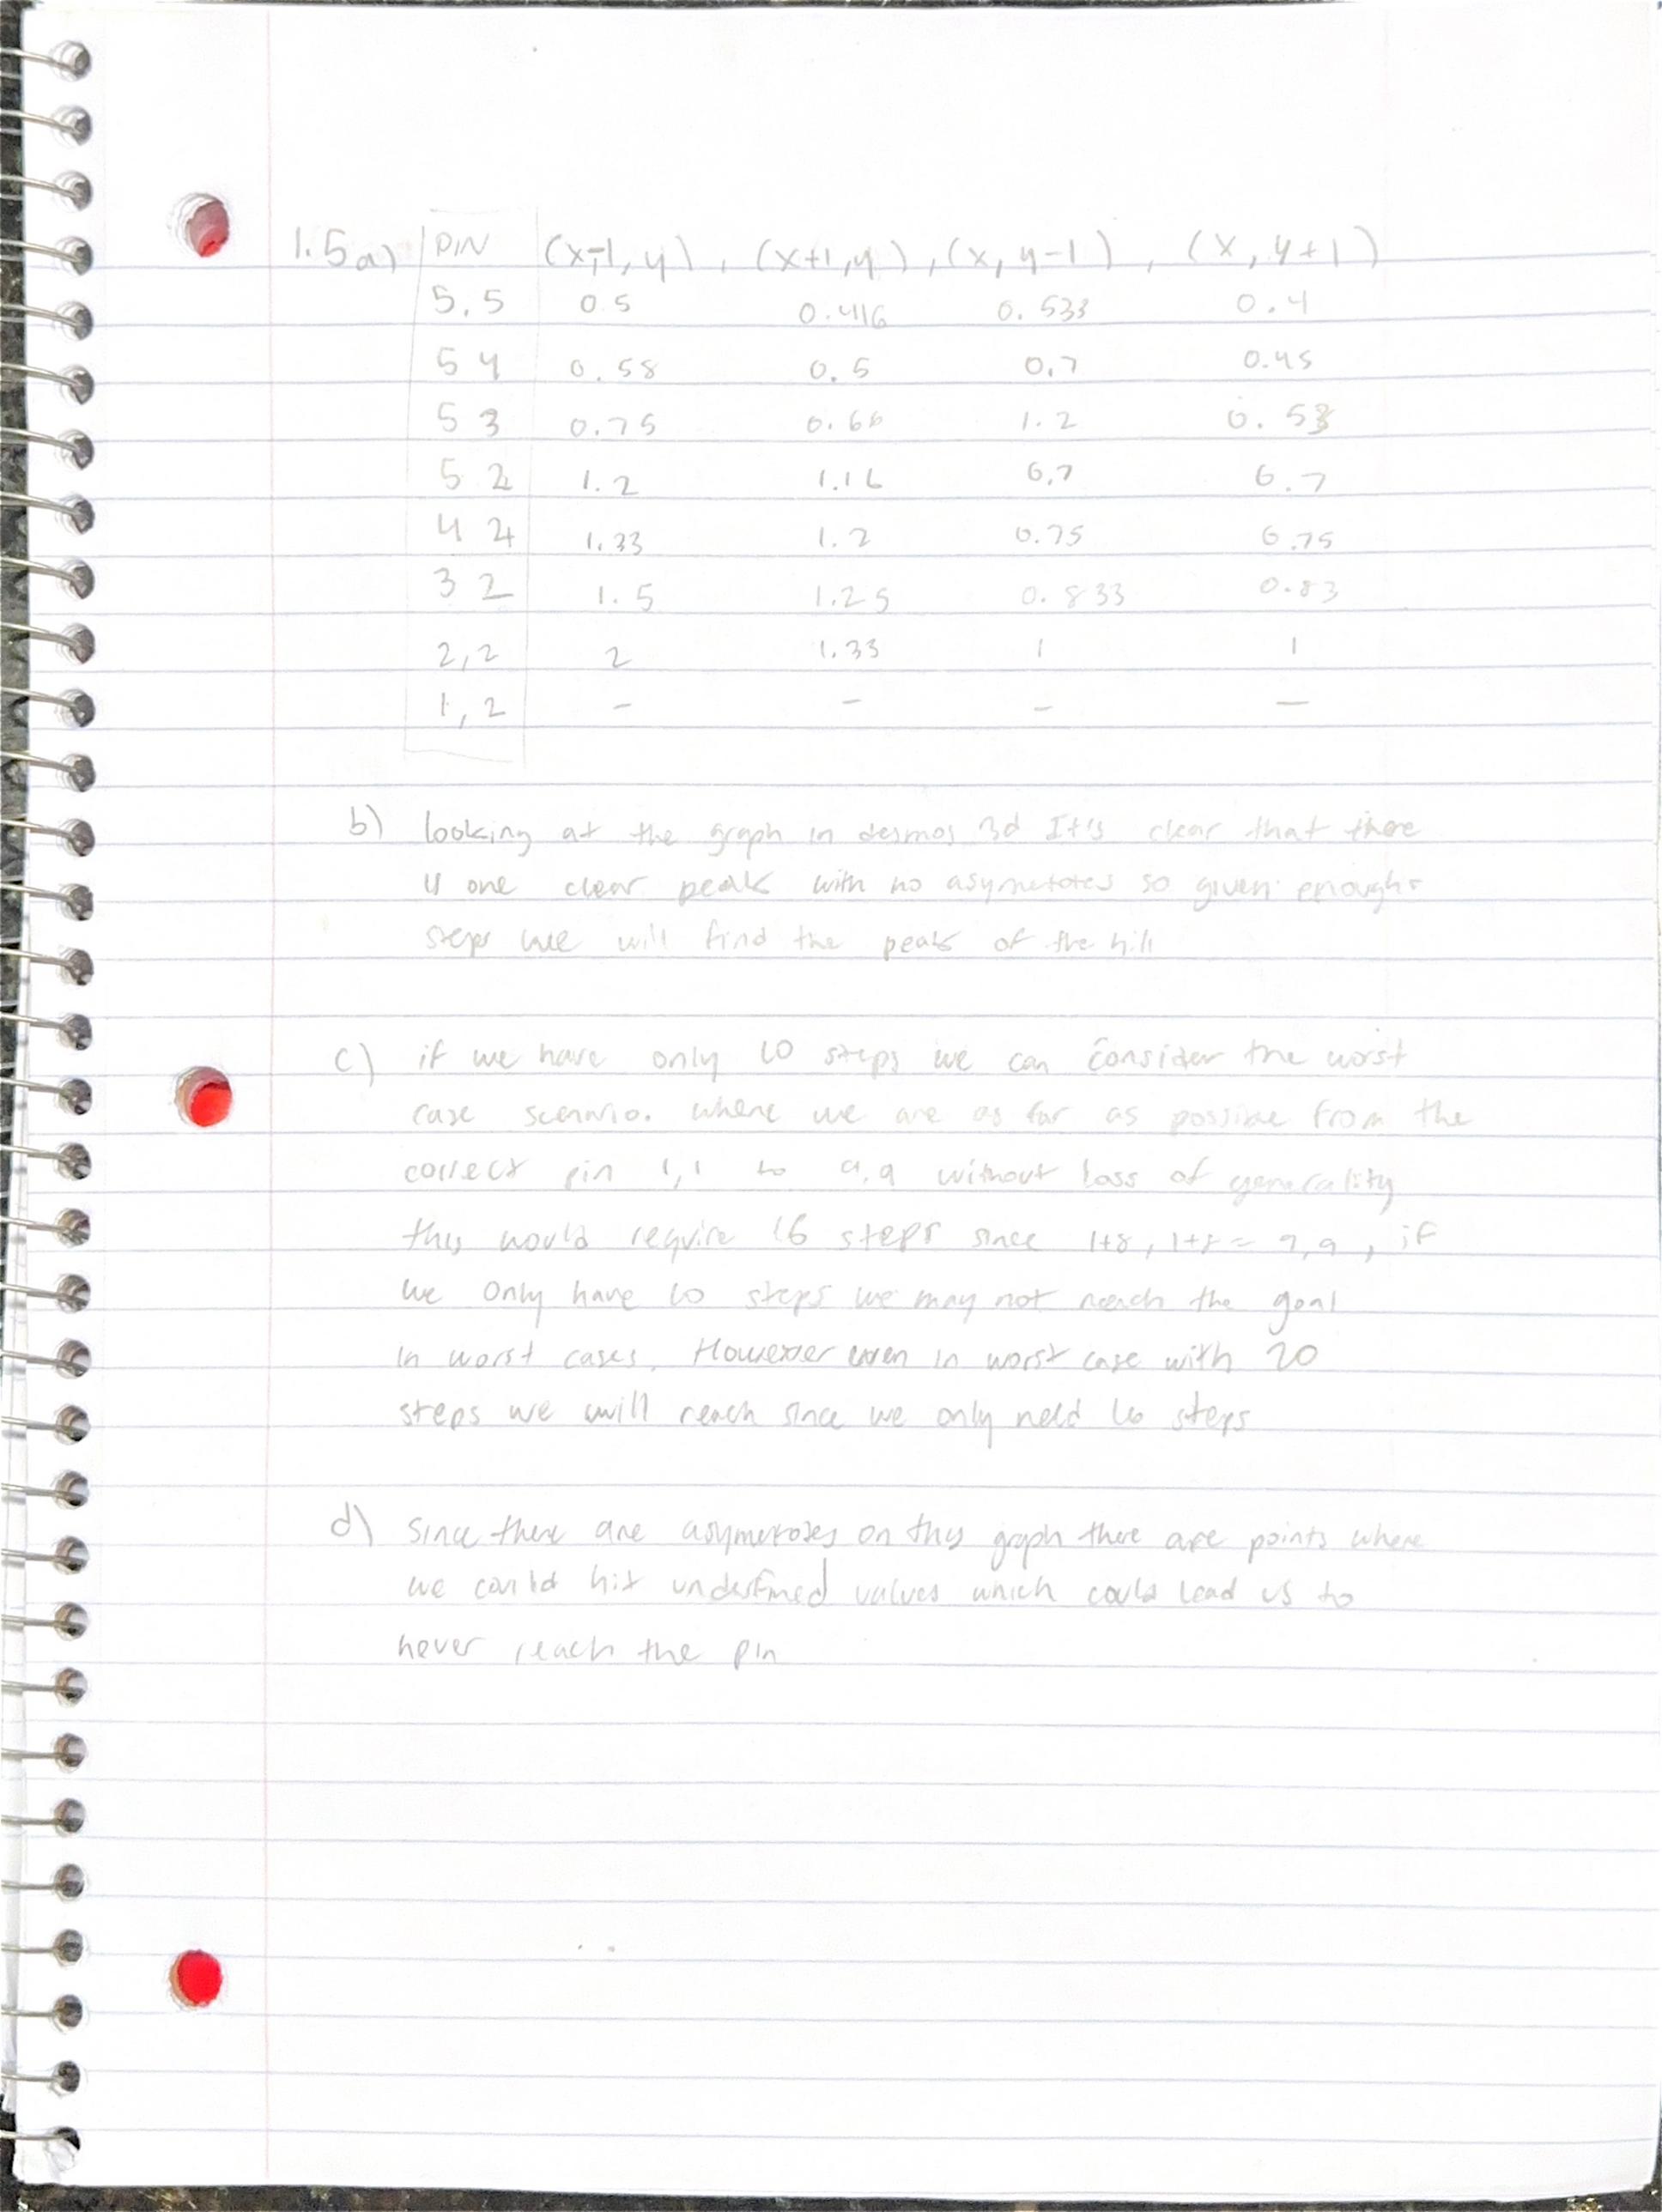 1.5a) PIN (x-1, y), (x+1, y), (x, y-1), (x, y+1)
5,5 0.5 0.416 0.533 0.4
5 4 0.58 0.5 0.7 0.45
5 3 0.75 0.66 1.2 0.53
5 2 1.2 1.16 0.7 0.7
4 2 1.33 1.2 0.75 0.75
3 2 1.5 1.25 0.833 0.83
2,2 2 1.33 1 1
1,2 - - - -
b) looking at the graph in desmos 3d It's clear that there
is one clear peak with no asymetotes so given enough
steps we will find the peak of the hill
c) if we have only 10 steps we can consider the worst
case scenario. where we are as far as possible from the
correct pin 1,1 to 9,9 without loss of generality
this would require 16 steps since 1+8, 1+8 = 9,9, if
we only have 10 steps we may not reach the goal
in worst cases. However even in worst case with 20
steps we will reach since we only need 16 steps
d) Since there are asymetotes on this graph there are points where
we could hit undefined values which could lead us to
never reach the pin